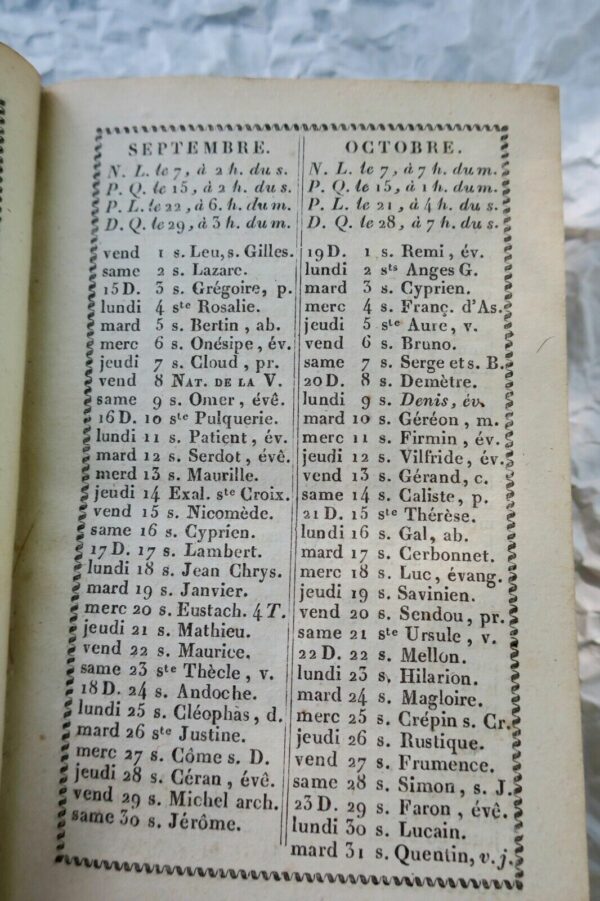 SEPTEMBRE.
N. L. le 7, à 2 h. du s.
P. Q. le 15, à 2 h. du s.
P. L. le 22, à 6. h. du m.
D. Q. le 29, à 3 h. du m.
vend 1 s. Leu, s. Gilles.
same 2 s. Lazare.
15 D. 3 s. Grégoire, p.
lundi 4 ste Rosalie.
mard 5 s. Bertin, ab.
merc 6 s. Onésipe, év.
jeudi 7 s. Cloud, pr.
vend 8 NAT. DE LA V.
same 9 s. Omer, évê.
16 D. 10 ste Pulquerie.
lundi 11 s. Patient, év.
mard 12 s. Serdot, évê.
merd 13 s. Maurille.
jeudi 14 Exal. ste Croix.
vend 15 s. Nicomède.
same 16 s. Cyprien.
17 D. 17 s. Lambert.
lundi 18 s. Jean Chrys.
mard 19 s. Janvier.
merc 20 s. Eustach. 4 T.
jeudi 21 s. Mathieu.
vend 22 s. Maurice.
same 23 ste Thècle, v.
18 D. 24 s. Andoche.
lundi 25 s. Cléophas, d.
mard 26 ste Justine.
merc 27 s. Côme s. D.
jeudi 28 s. Céran, évê.
vend 29 s. Michel arch.
same 30 s. Jérôme.
OCTOBRE.
N. L. le 7, à 7 h. du m.
P. Q. le 15, à 1 h. du m.
P. L. le 21, à 4 h. du s.
D. Q. le 28, à 7 h. du s.
19 D. 1 s. Remi, év.
lundi 2 sts Anges G.
mard 3 s. Cyprien.
merc 4 s. Franç. d'As.
jeudi 5 ste Aure, v.
vend 6 s. Bruno.
same 7 s. Serge et s. B.
20 D. 8 s. Demètre.
lundi 9 s. Denis, év.
mard 10 s. Géréon, m.
merc 11 s. Firmin, év.
jeudi 12 s. Vilfride, év.
vend 13 s. Gérand, c.
same 14 s. Caliste, p.
21 D. 15 ste Thérèse.
lundi 16 s. Gal, ab.
mard 17 s. Cerbonnet.
merc 18 s. Luc, évang.
jeudi 19 s. Savinien.
vend 20 s. Sendou, pr.
same 21 ste Ursule, v.
22 D. 22 s. Mellon.
lundi 23 s. Hilarion.
mard 24 s. Magloire.
merc 25 s. Crépin s. Cr.
jeudi 26 s. Rustique.
vend 27 s. Frumence.
same 28 s. Simon, s. J.
23 D. 29 s. Faron, évê.
lundi 30 s. Lucain.
mard 31 s. Quentin, v. j.